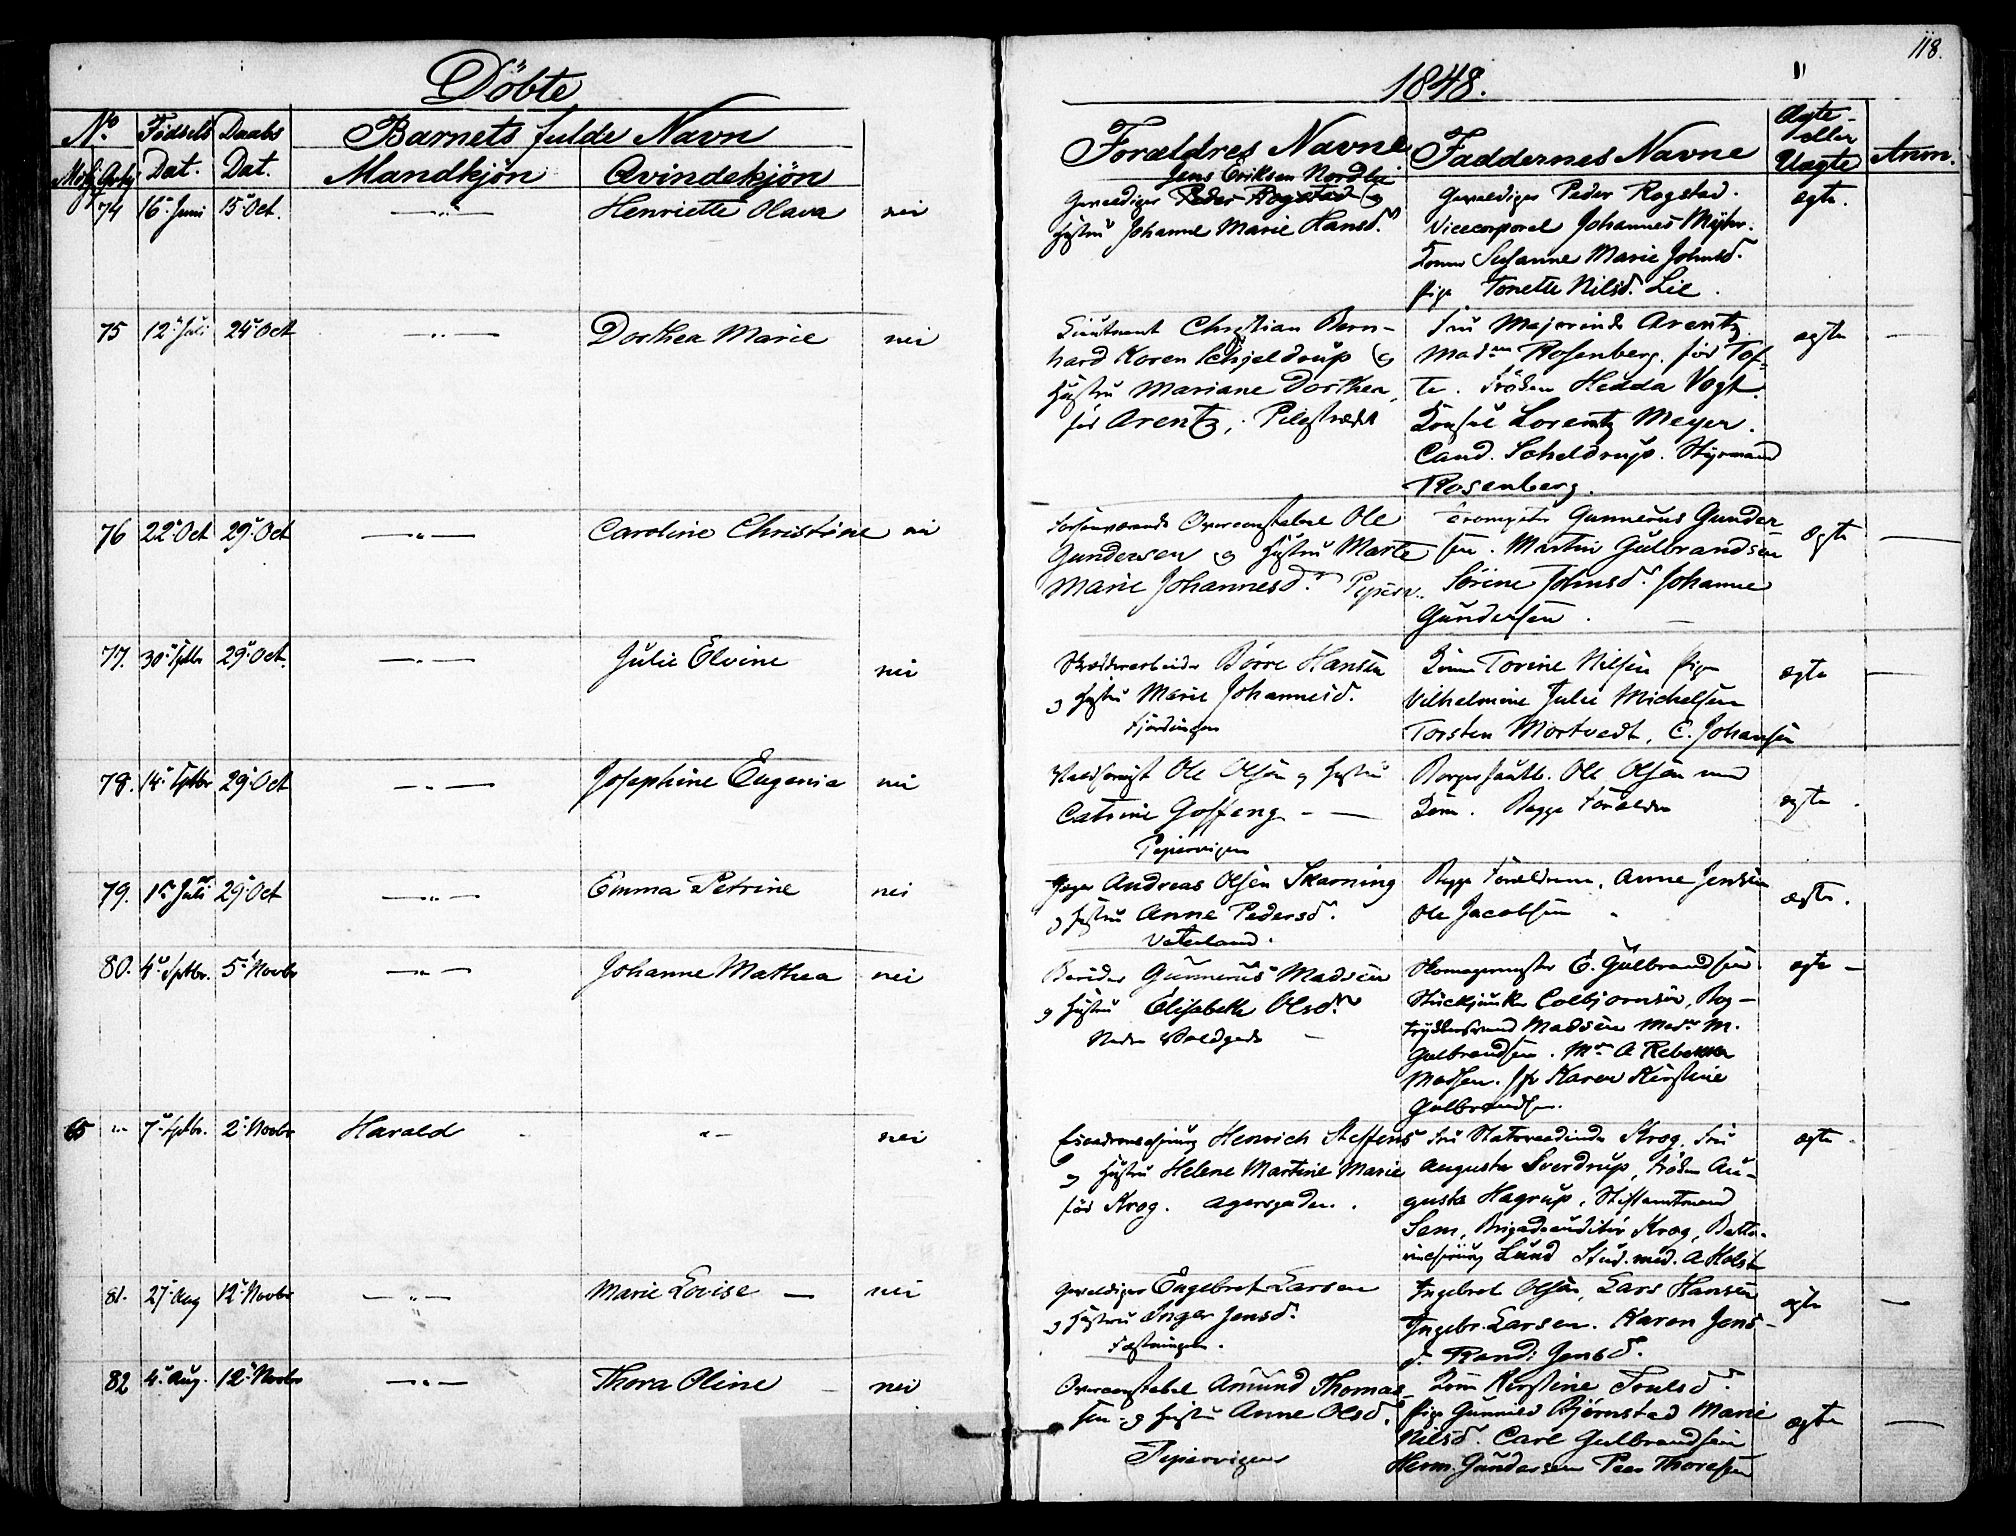 118.
Döbte
1848.
No Fødsels Daabs Barnets fulde Navn
Dat. Dat. Mandkjön Qvindekjön
Forældres Navne Faddernes Navne Ægte eller Uægte Anm.
74 16 Juni 15 Oct. — " — Henriette Olava nei
Jens Eriksen Nordbu
Gevaldiger Peder Rogstad og
Hustru Johanne Marie Hansd.
Gevaldiger Peder Rogstad.
Vicecorporal Johannes
Kone Susanne Marie Johnsd.
Pige Tonette Nilsd. Lie.
ægte.
75 12 Juli 24 Oct — " — Dorthea Marie nei
Lieutnant Christian Bern-
hard Koren Schjeldrup og
Hustru Mariane Dorthea,
fød Arentz, Pilestrædet
Fru Majorinde Arentz
Madm Rosenberg, fød Tof-
te. Frøken Hedda Vogt.
Consul Lorentz Meyer.
Cand. Scheldrup. Styrmand
Rosenberg.
ægte —
76 22 Oct 29 Oct — " — Caroline Christine nei
Overconstabel Ole
Gundersen og Hustru Marte
Marie Johannesd. Piperv.
Trompeter Gunnerus Gunder
sen. Martin Gulbrandsen
Sörine Johnsd. Johanne
Gundersen.
ægte —
77. 30 Sptbr 29 Oct. — " — Julie Elvine nei
Børre Hansen
og Hustru Marie Johannesd.
Fjerdingen
Kone Torine Nilsen Pige
Vilhelmine Julie Michelsen
Torsten Mortvedt, C. Johansen
ægte —
78. 14 Sptbr 29 Oct — " — Josephine Eugenia nei
Ole Olsen og Hustru
Catrine Goffeng — —
Pipervigen
Ole Olsen med
Kone. Begge Forældre
ægte
79. 1 Juli 29 Oct — " — Emma Petrine nei
Jæger Andreas Olsen Skarning
og Hustru Anne Pedersd.
Vaterland.
Begge Forældrene, Anne Jensen
Ole Jacobsen
ægte.
80. 4 Sptbr. 5 Novbr — " — Johanne Mathea nei
Berider Gunnerus Madsen
og Hustru Elisabeth Olsd.
Nedre Voldgade —
Skomagermester E. Gulbrandsen
Stückjunker Colbjornsen, Bog-
trykkersvend Madsen Mad. M.
Gulbrandsen. Md. A Rebekka
Madsen. Jfr Karen Kirstine
Gulbrandsen.
ægte —
65 " 7 Sptbr. 2 Novbr Harald " — nei
Henrich Steffens
og Hustru Helene Martine Marie
fød Krog. Agersgaden.
Fru Statsraadinde Krog, Fru
Augusta Sverdrup, Frøken Au-
gusta Hagrup, Stiftamtmand
Sem, Brigadeauditør Krog, Batte-
Lund Stud. med. A Holst
ægte
81. 27 Aug 12 Novbr — " — Marie Lovise — nei
Gevaldiger Engebret Larsen
og Hustru Inger Jensd.
Fæstningen.
Ingebret Olsen, Lars Hansen
Ingebr. Larsen. Karen Jens-
d. Randi Jensd.
ægte —
82 4 Aug. 12 Novbr — " — Thora Oline nei
Overconstabel Amund Thomas-
sen og Hustru Anne Olsd.
Pipervigen
Kone Kirstine Trulsd.
Pige Gunnild Bjørnstad Marie
Nilsd. Carl Gulbrandsen
Herm. Gundersen Peer Thoresen
ægte —